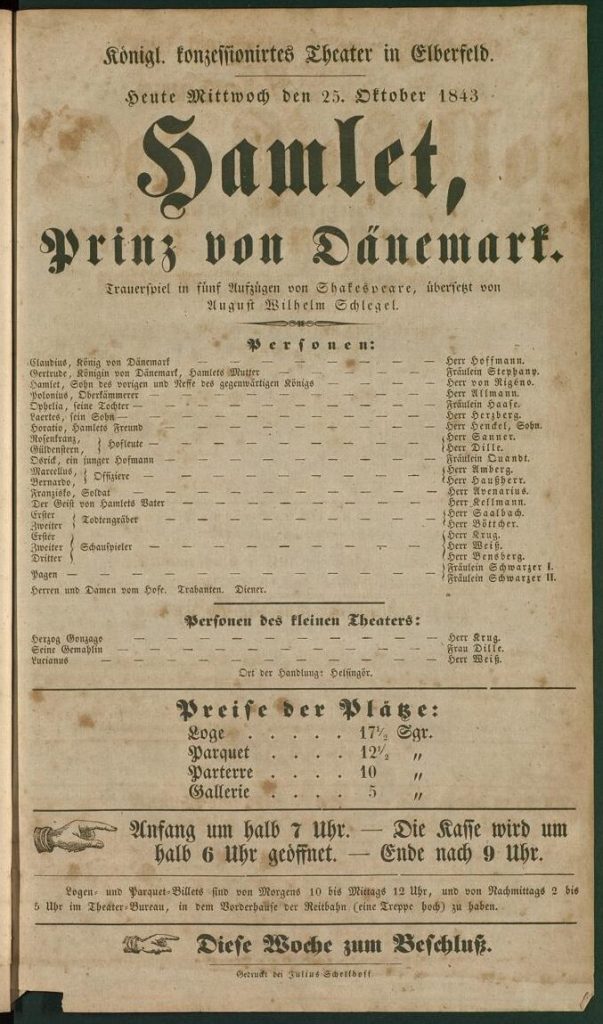 Königl. konzessionirtes Theater in Elberfeld.
Heute Mittwoch den 25. Oktober 1843
Hamlet,
Prinz von Dänemark.
Trauerspiel in fünf Aufzügen von Shakespeare, übersetzt von
August Wilhelm Schlegel.
Personen:
Claudius, König von Dänemark — — — — — — — — Herr Hoffmann.
Gertrude, Königin von Dänemark, Hamlets Mutter — — — — — — Fräulein Stephany.
Hamlet, Sohn des vorigen und Neffe des gegenwärtigen Königs — — — — Herr von Rigéno.
Polonius, Oberkämmerer — — — — — — — — Herr Allmann.
Ophelia, seine Tochter — — — — — — — — Fräulein Haase.
Laertes, sein Sohn — — — — — — — — Herr Herzberg.
Horatio, Hamlets Freund — — — — — — — — Herr Henckel, Sohn.
Rosenkranz, } Hofleute — — — — — — — — { Herr Sanner.
Güldenstern, } { Herr Dille.
Osrick, ein junger Hofmann — — — — — — — — Fräulein Quandt.
Marcellus, } Offiziere — — — — — — — — { Herr Amberg.
Bernardo, } { Herr Haußherr.
Franzisko, Soldat — — — — — — — — Herr Avenarius.
Der Geist von Hamlets Vater — — — — — — — — Herr Kellmann.
Erster } Todtengräber — — — — — — — — { Herr Saalbach.
Zweiter } { Herr Böttcher.
Erster } { Herr Krug.
Zweiter } Schauspieler — — — — — — — — { Herr Weiß.
Dritter } { Herr Bensberg.
Pagen — — — — — — — — { Fräulein Schwarzer I.
{ Fräulein Schwarzer II.
Herren und Damen vom Hofe. Trabanten. Diener.
Personen des kleinen Theaters:
Herzog Gonzago — — — — — — — — Herr Krug.
Seine Gemahlin — — — — — — — — Frau Dille.
Lucianus — — — — — — — — Herr Weiß.
Ort der Handlung: Helsingör.
Preise der Plätze:
Loge . . . . . 17½ Sgr.
Parquet . . . . 12½ „
Parterre . . . . 10 „
Gallerie . . . . 5 „
Anfang um halb 7 Uhr. — Die Kasse wird um
halb 6 Uhr geöffnet. — Ende nach 9 Uhr.
Logen- und Parquet-Billets sind von Morgens 10 bis Mittags 12 Uhr, und von Nachmittags 2 bis
5 Uhr im Theater-Bureau, in dem Vorderhause der Reitbahn (eine Treppe hoch) zu haben.
Diese Woche zum Beschluß.
Gedruckt bei Julius Schellhoff.